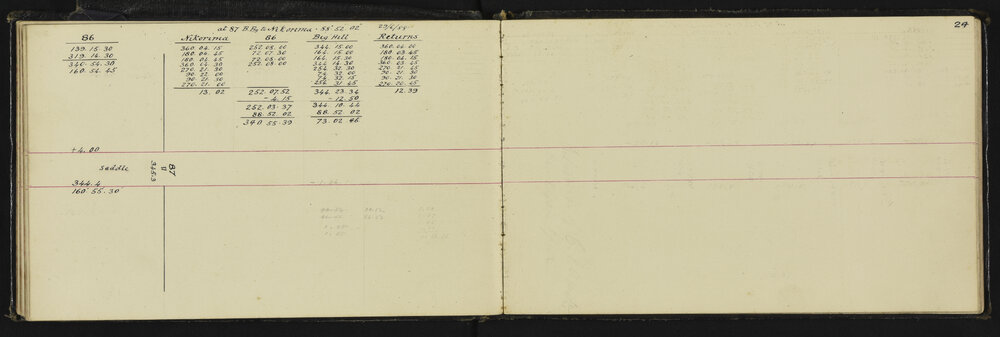 24
at 87 B.Bg to Nikorima · 88° 52' 02" 23/2/
86 Nikorima 86 Big Hill Returns
139. 15. 30 360. 04. 15 252. 08. 00 344. 15. 00 360. 04. 00
319. 14. 30 180. 04. 45 72. 07. 30 164. 15. 00 180. 03. 45
340. 54. 30 180. 04. 45 72. 08. 00 164. 15. 30 180. 04. 15
160. 54. 45 360. 04. 30 252. 08. 00 344. 14. 30 360. 03. 45
270. 21. 30 254. 32. 30 270. 21. 45
90. 22. 00 74. 32. 00 90. 21. 30
90. 21. 30 74. 32. 15 90. 21. 30
270. 21. 00 254. 31. 45 270. 20. 45
13. 02 252. 07. 52 344. 23. 34 12. 39
- 4. 15 - 12. 50
252. 03. 37 344. 10. 44
88. 52. 02 88. 52. 02
340. 55. 39 73. 02. 46
+4. 00
Saddle
87
345.3
344. 4
160. 55. 30